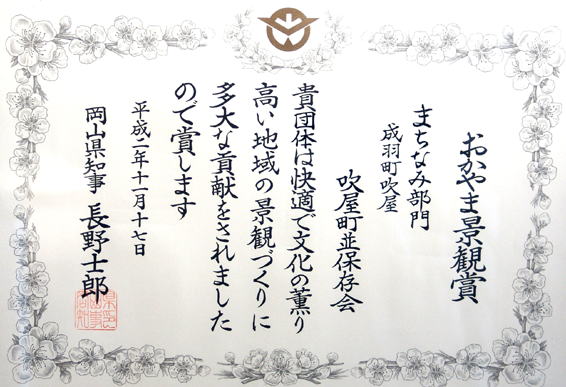 おかやま景観賞
まちなみ部門
成羽町吹屋
吹屋町並保存会
貴団体は快適で文化の薫り
高い地域の景観づくりに
多大な貢献をされました
ので賞します
平成二年十一月十七日
岡山県知事 長野士郎